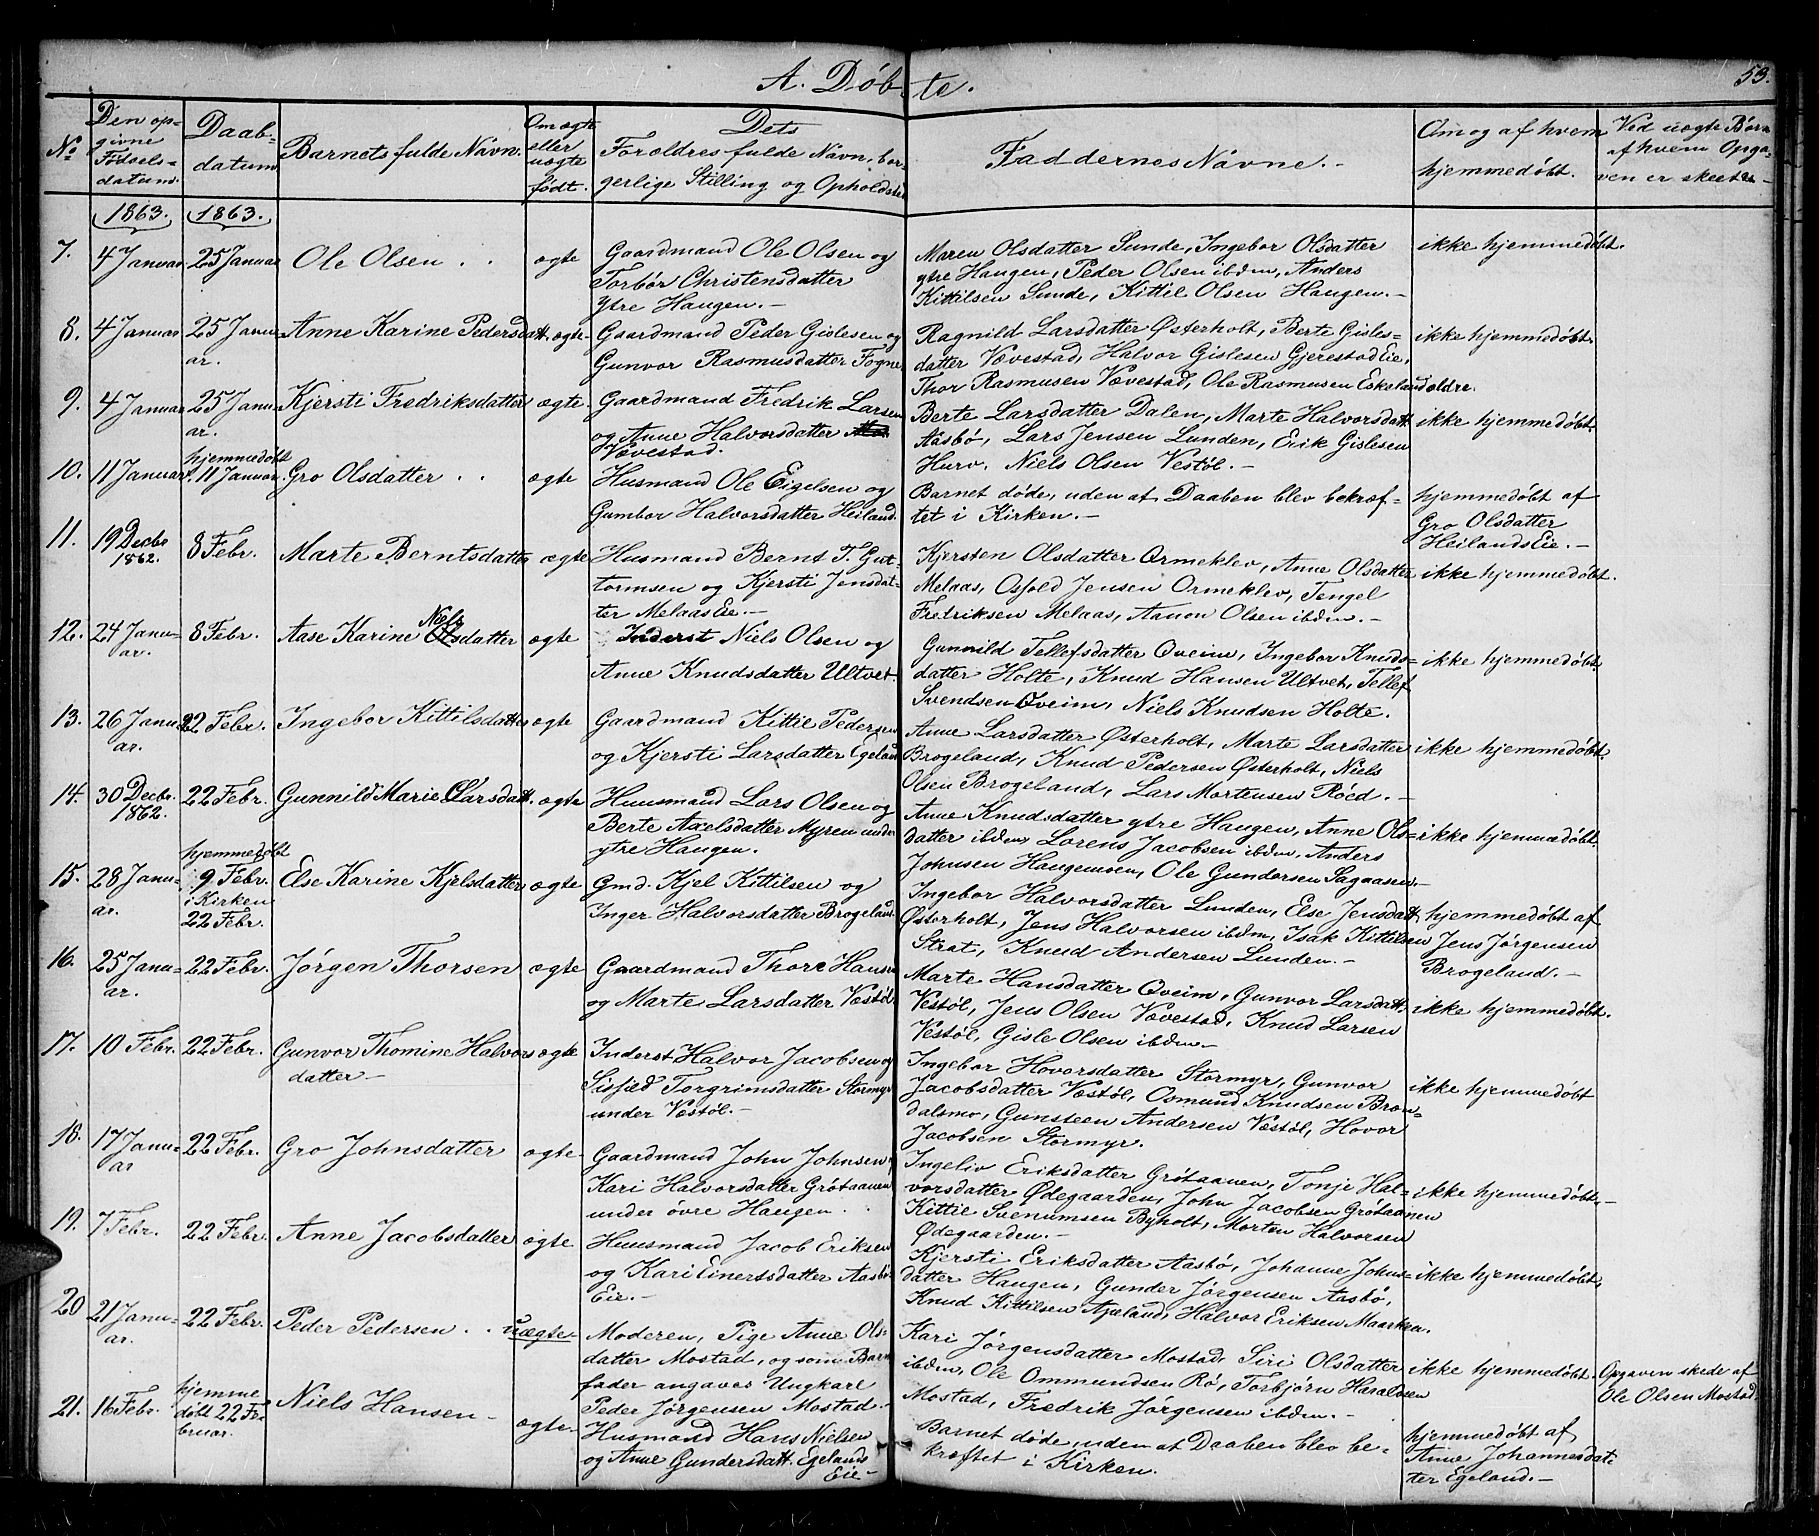 A. Døbte.
53.
No
Den opgivne Fødselsdatum.
Daabdatum
Barnets fulde Navn.
Om ægte eller uægte født.
Dets Forældres fulde Navn, borgerlige Stilling og Opholdssted
Faddernes Navne.
Om og af hvem hjemmedøbt.
Ved uægte Børn af hvem Opgaven er skeet
1863. 1863.
7. 4 Januar 25 Januar Ole Olsen ægte
Gaardmand Ole Olsen og
Torbør Christensdatter
Ytre Haugen.
Maren Olsdatter Sunde, Ingebor Olsdatter
ytre Haugen, Peder Olsen ibdm, Anders
Kittilsen Sunde, Kittil Olsen Haugen.
ikke hjemmedøbt.
8. 4 Januar 25 Januar. Anne Karine Pedersdatt. ægte
Gaardmand Peder Gislesen og
Gunvor Rasmusdatter Fogne
Ragnild Larsdatter Østerholt, Berte Gisles-
datter Vævestad, Halvor Gislesen Gjerestad Eie,
Thor Rasmusen Vævestad, Ole Rasmusen Eskeland ældre.
ikke hjemmedøbt.
9. 4 Januar 25 Januar. Kjersti Fredriksdatter ægte
Gaardmand Fredrik Larsen
og Anne Halvorsdatter
Vævestad.
Berte Larsdatter Dalen, Marte Halvorsdatt
Aasbø, Lars Jensen Lunden, Erik Gislesen
Hurv. Niels Olsen Vestøl.
ikke hjemmedøbt.
10. 11 Januar hjemmedøbt 11 Januar. Gro Olsdatter ægte
Husmand Ole Eigelsen og
Gumbor Halvorsdatter Heiland.
Barnet døde, uden at Daaben blev bekræf-
tet i Kirken.
hjemmedøbt af
Gro Olsdatter
Heilands Eie.
11. 19 Decbr 1862. 8 Febr. Marte Berntsdatter ægte
Husmand Bernt T. Gut-
tormsen og Kjersti Jensdat-
ter Melaas Eie.
Kjersten Olsdatter Ormeklev, Anne Olsdatter
Melaas, Osfold Jensen Ormeklev, Tengel
Fredriksen Melaas, Aanon Olsen ibdm.
ikke hjemmedøbt.
12. 24 Januar. 8 Febr. Aase Karine Nielsdatter ægte
Inderst Niels Olsen og
Anne Knudsdatter Ultvet
Gunnild Tellefsdatter Qveim, Ingebor Knuds-
datter Holte, Knud Hansen Ultvet, Tellef
Svendsen Qveim, Niels Knudsen Holte.
ikke hjemmedøbt.
13. 26 Januar. 22 Febr. Ingebor Kittilsdatter ægte
Gaardmand Kittil Pedersen
og Kjersti Larsdatter Egeland
Anne Larsdatter Østerholt, Marte Larsdatter
Brogeland, Knud Pedersen Østerholt, Niels
Olsen Brogeland, Lars Mortensen Røed.
ikke hjemmedøbt.
14. 30 Decbr. 1862. 22 Febr. Gunnild Marie Larsdatt. ægte
Huusmand Lars Olsen og
Berte Axelsdatter Myren under
ytre Haugen.
Anne Knudsdatter ytre Haugen, Anne Ols-
datter ibdm, Lorens Jacobsen ibdm, Anders
Johnsen Haugemoen, Ole Gundersen Sagaasen.
ikke hjemmedøbt.
15. 28 Januar. hjemmedøbt 9 Febr. i Kirken 22 Febr. Else Karine Kjelsdatter ægte
Gmd. Kjel Kittilsen og
Inger Halvorsdatter Brogeland
Ingebor Halvorsdatter Lunden, Else Jensdatt
Østerholt, Jens Halvorsen ibdm, Isak Kittilsen
Strat, Knud Andersen Lunden.
hjemmedøbt af
Jens Jørgensen
Brogeland.
16. 25 Januar. 22 Febr. Jørgen Thorsen ægte
Gaardmand Thore Hansen
og Marte Larsdatter Vestøl
Marte Hansdatter Qveim, Gunvor Larsdatt.
Vestøl, Jens Olsen Vævestad, Knud Larsen
Vestøl, Gisle Olsen ibdm.
ikke hjemmedøbt.
17. 10 Febr. 22 Febr. Gunvor Thomine Halvorsdatter ægte
Inderst Halvor Jacobsen og
Sisfied Torgrimsdatter Stormyr
under Vestøl.
Ingebor Hovorsdatter Stormyr, Gunvor
Jacobsdatter Vestøl, Osmund Knudsen Bron-
dalsmo, Gunsteen Andersen Vestøl, Hovor
Jacobsen Stormyr.
ikke hjemmedøbt
18. 17 Januar 22 Febr. Gro Johnsdatter ægte
Gaardmand John Johnsen,
Kari Halvorsdatter Grøtaanen
under øvre Haugen.
Ingeliv Eriksdatter Grøtaanen, Tonje Hal-
vorsdatter Ødegaarden, John Jacobsen Grøtaanen
Kittil Svenumsen Byholt, Morten Halvorsen
Ødegaarden.
ikke hjemmedøbt.
19. 7 Febr. 22 Febr. Anne Jacobsdatter ægte
Huusmand Jacob Eriksen
og Kari Einertsdatter Aasbø
Eie.
Kjersti Eriksdatter Aasbø, Johanne Johns-
datter Haugen, Gunder Jørgensen Aasbø,
Knud Kittilsen Ajeland, Halvor Eriksen Maarken.
ikke hjemmedøbt.
20 21 Januar. 22 Febr. Peder Pedersen uægte
Moderen, Pige Anne Ols-
datter Mostad, og som Barn
fader angaves Ungkarl
Peder Jørgensen Mostad.
Kari Jørgensdatter Mostad, Siri Olsdatter
ibdm, Ole Ommundsen Rø, Torbjørn Haraldsen
Mostad, Fredrik Jørgensen ibdm.
ikke hjemmedøbt.
Opgaven skede af
Ole Olsen Mostad.
21. 16 Febr. hjemmedøbt 22 Februar. Niels Hansen ægte.
Husmand Hans Nielsen
og Anne Gundersdatt. Egelands
Eie
Barnet døde, uden at Daaben blev be-
kræftet i Kirken.
hjemmedøbt af
Anne Johannesdat-
ter Egeland.